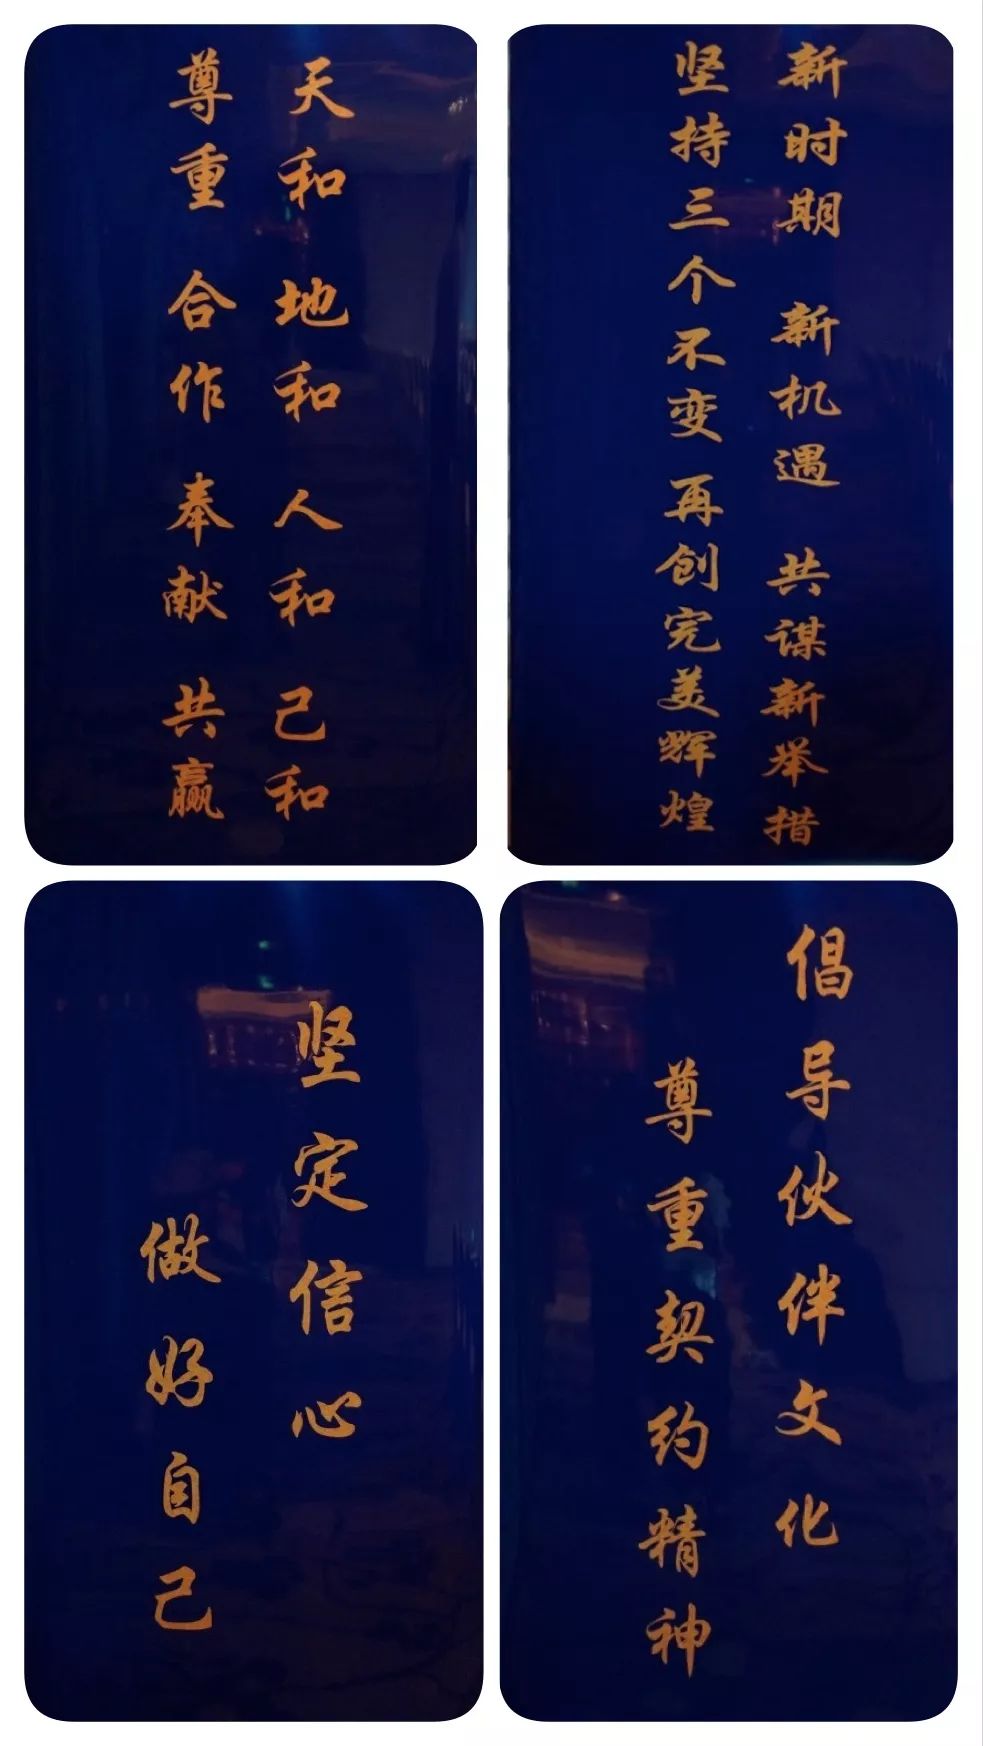 天和 地和 人和 己和
尊重 合作 奉献 共赢
新时期 新机遇 共谋新举措
坚持三个不变 再创完美辉煌
坚定信心
做好自己
倡导伙伴文化
尊重契约精神